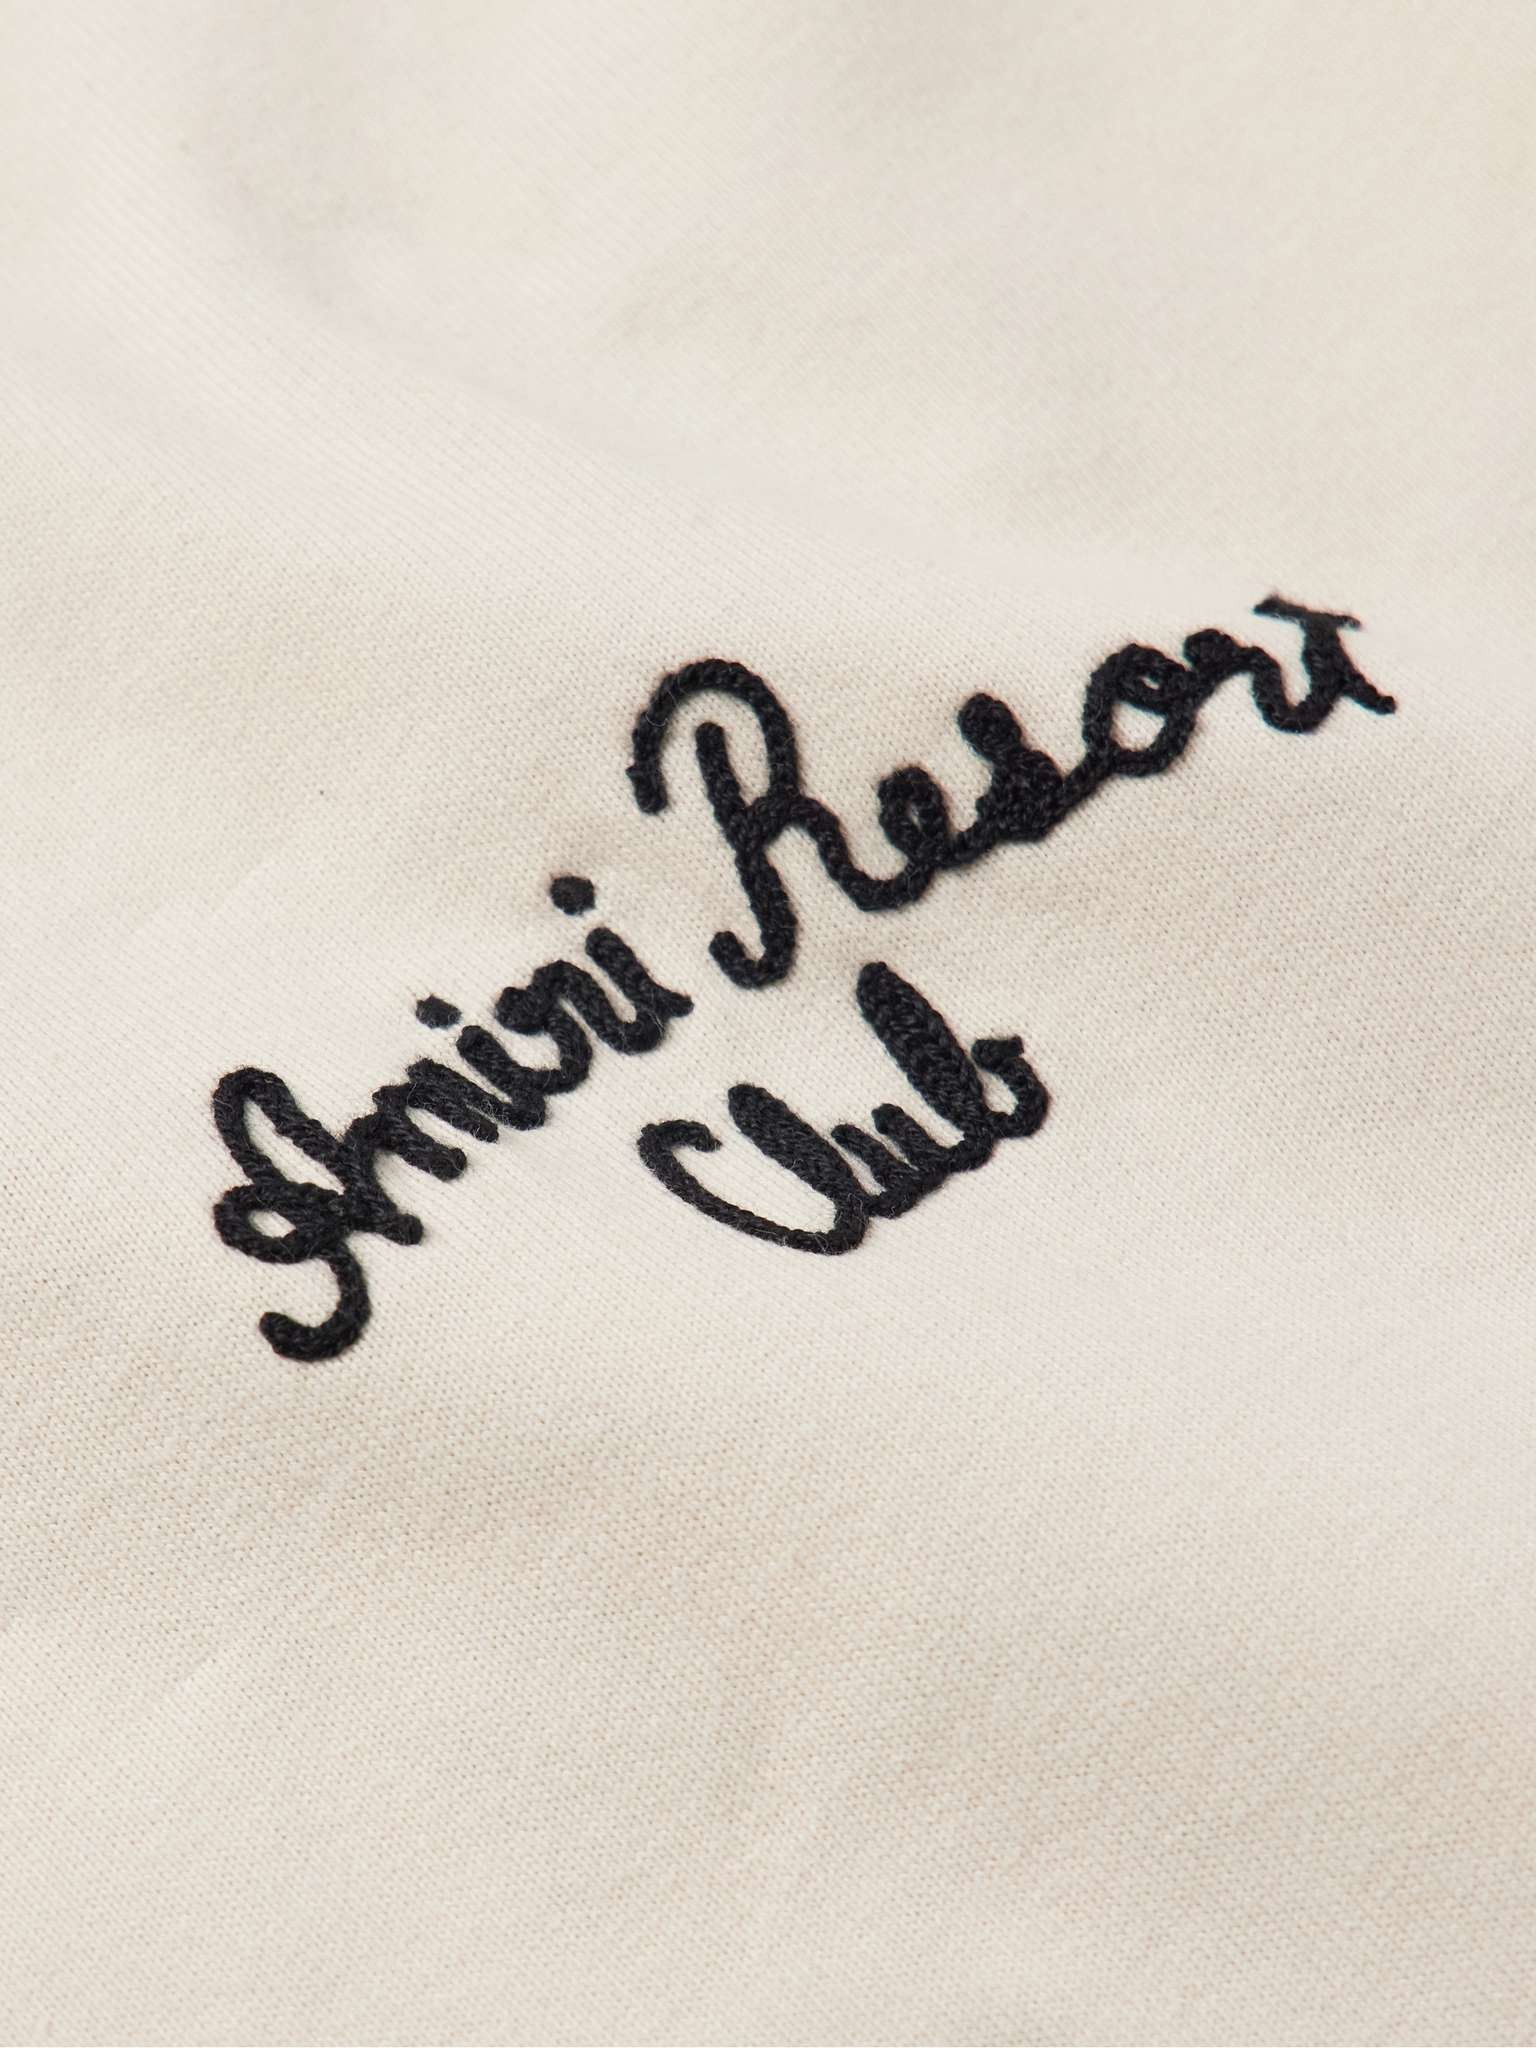 Amiri Resort
Club